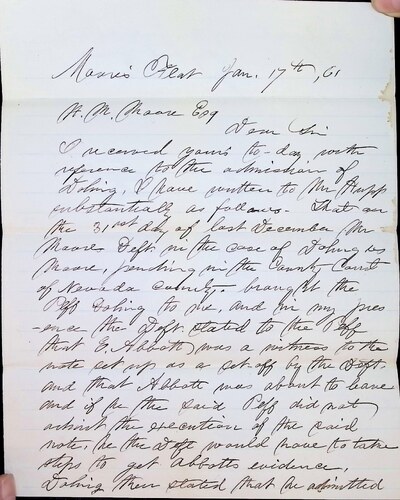 Moore's Flat Jan. 17th, 61
H. M. Moore Esq
Dear Sir
I received yours to-day, with
reference to the admission of
Doling, I have written to Mr Rupp
substantially as follows. That on
the 31st day of last December Mr
Moore Deft. in the case of Doling vs
Moore, pending in the County Court
of Nevada County, brought the
Plff Doling to me, and in my pres
-ence the Deft stated to the Plff
that E. Abbott was a witness to the
note set up as a set off by the Deft
and that Abbott was about to leave
and if he the said Plff did not
admit the execution of the said
note, he the Deft would have to take
steps to get Abbotts evidence.
Doling then stated that he admitted